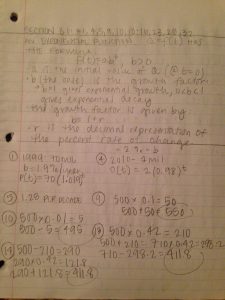 SECTION 6.1: #1, 4, 5, 9, 10, 12, 14, 23, 26, 32
AN EXPONENTIAL FUNCTION Q = f(t) HAS
THE FORMULA:
f(t) = abᵗ, b>0
a is the initial value of Q (@ t=0)
b (the base) is the growth factor
b>1 gives exponential growth, 0<b<1
gives exponential decay
the growth factor is given by
b = 1+r
r is the decimal representation of
the percent rate of change
① 1999 70mil
b = 1.9%/year
P(t) = 70(1.019)ᵗ
④ 2010- 2 mil
Q(t) = 2(0.98)ᵗ
⑤ 1.28 PER DECADE
⑨ 500 × 0.1 = 50
500 + 50 = 550
⑩ 500 × 0.01 = 5
500 - 5 = 495
500 × 0.42 = 210
500 + 210 = 710
710 × 0.42 = 298.2
710 - 298.2 = 411.8
⑭ 500 - 210 = 290
290 × 0.42 = 121.8
290 + 121.8 = 411.8